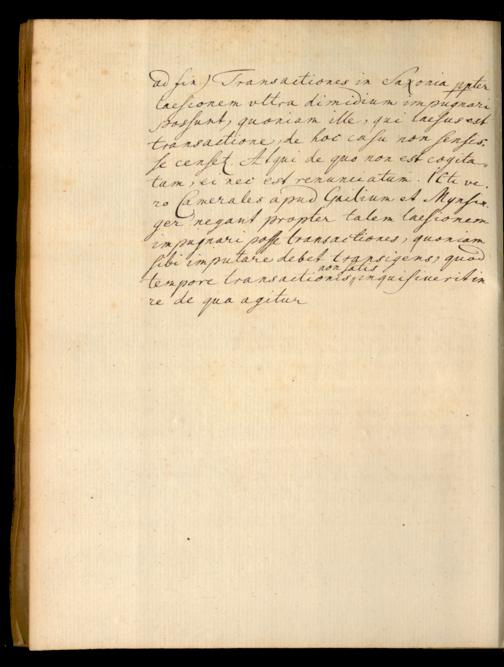 ad fin) Transactiones in Saxonia ppter
laesionem vltra dimidium impugnari
possunt, quoniam ille, qui laesus est
transactione, de hoc casu non sensis-
se censet. Atqui de quo non est cogita-
tum, ei nec est renunciatum. ICti ve-
ro Camerales apud Gailium et Mynsin-
ger negant propter talem laesionem
impugnari posse transactiones, quoniam
sibi imputare debet transigens, quod
tempore transactionis non satis inquisiverit in
re de qua agitur